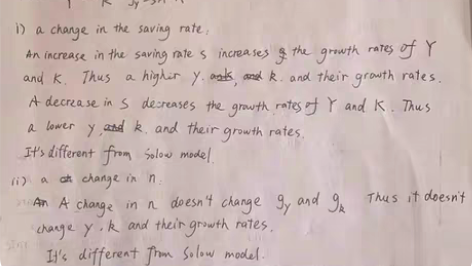 i) a change in the saving rate.
An increase in the saving rate s increases the growth rates of Y
and K. Thus a higher y, and k. and their growth rates.
A decrease in s decreases the growth rates of Y and K. Thus
a lower y and k. and their growth rates.
It's different from Solow model.
(ii) a change in n.
A change in n doesn't change gy and gk Thus it doesn't
change y. k and their growth rates.
It's different from Solow model.